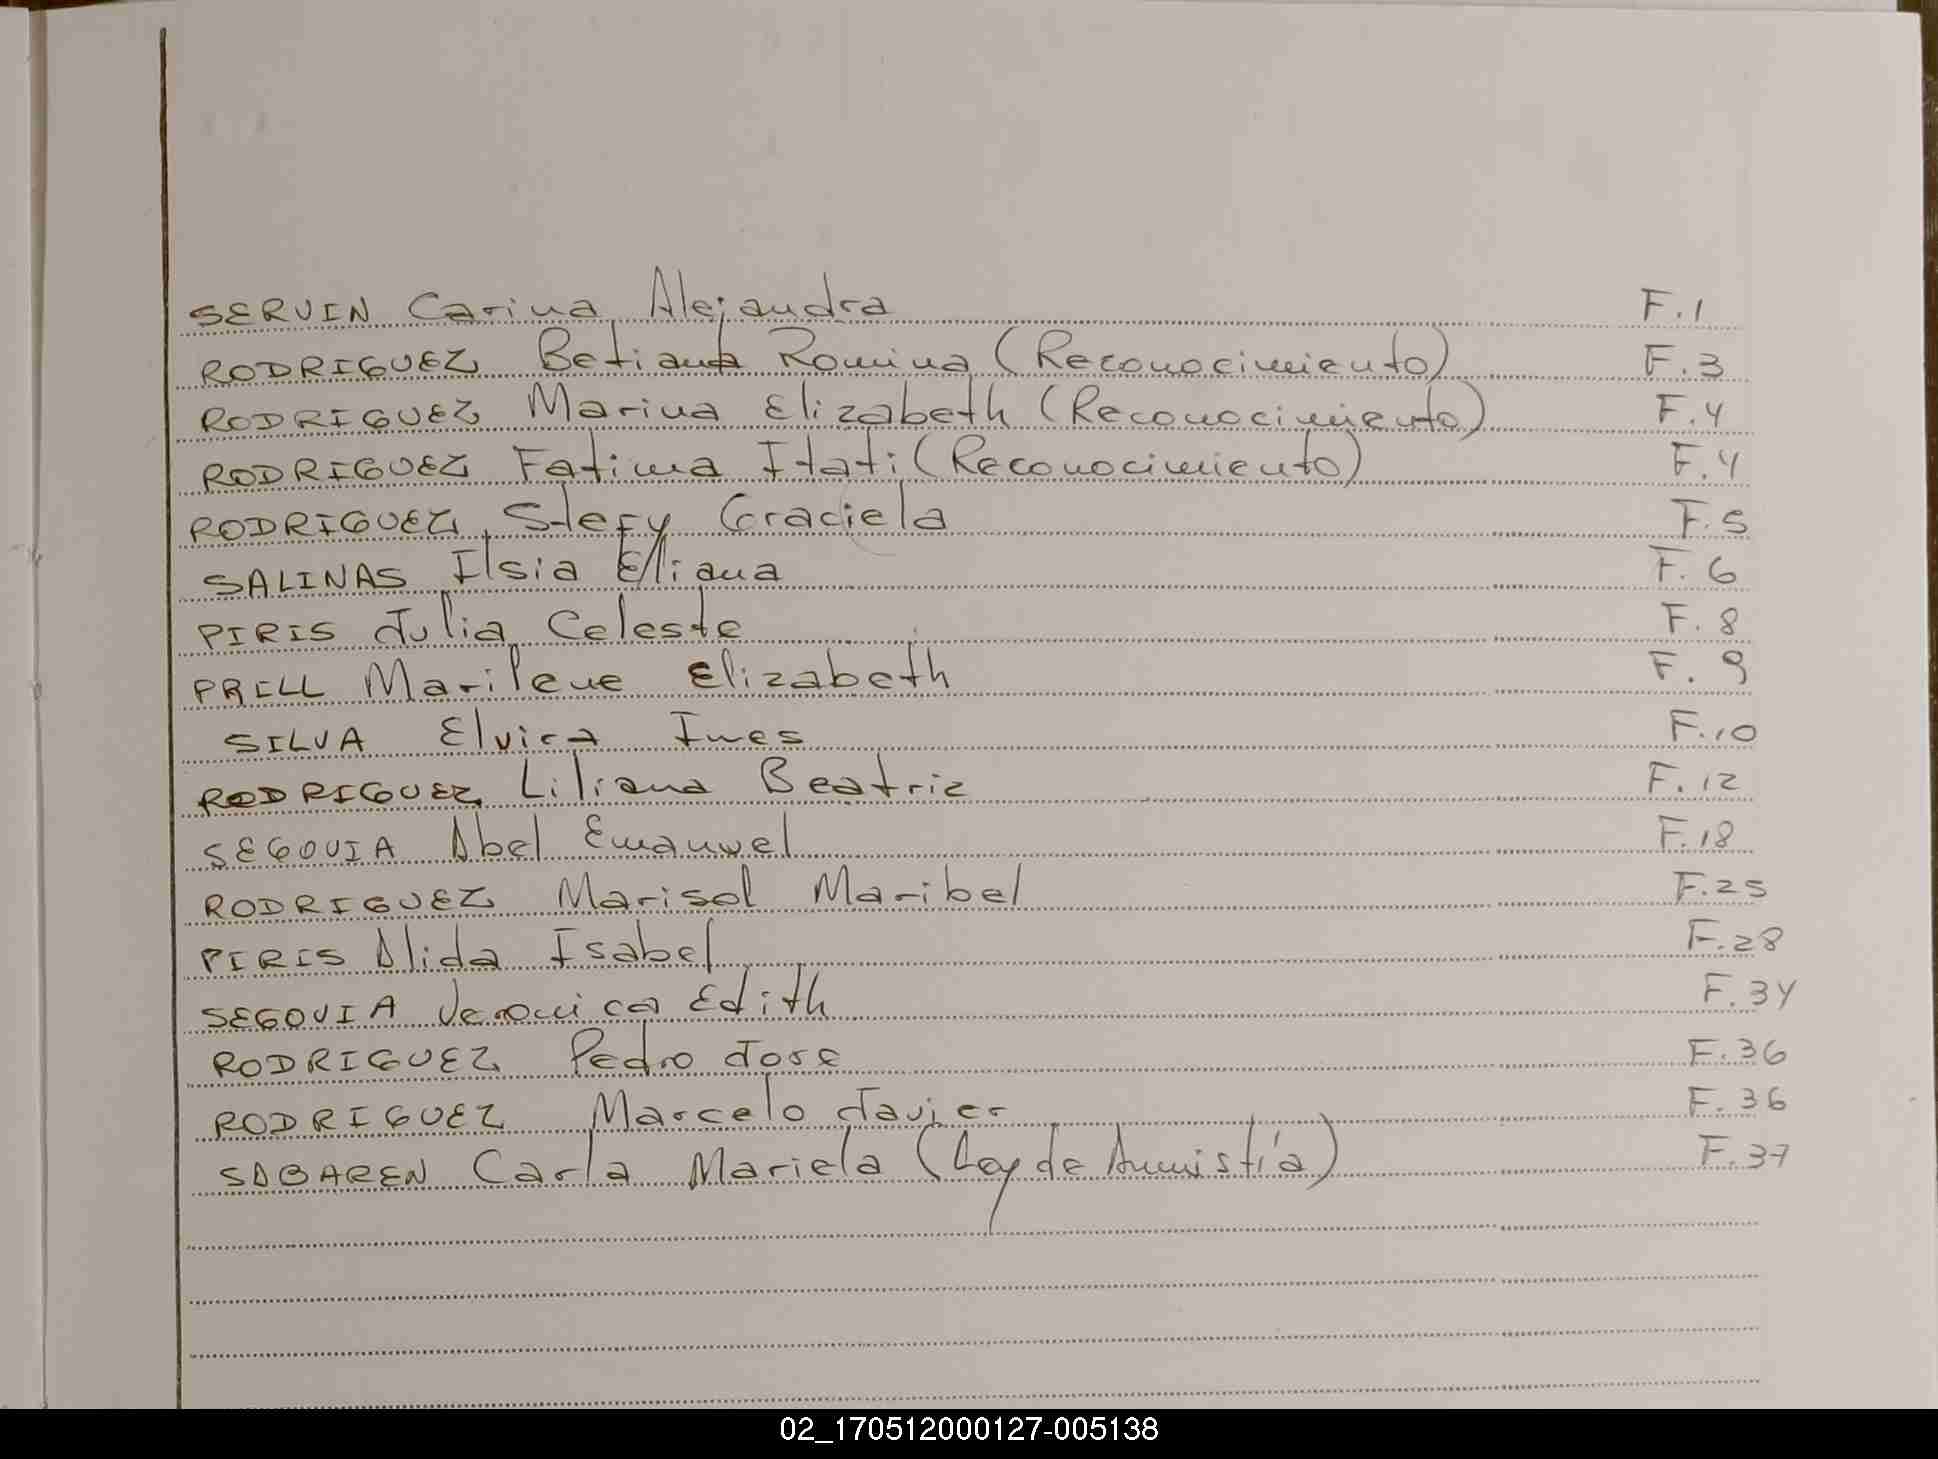 SERVIN Carina Alejandra F.1
RODRIGUEZ Betiana Romina (Reconocimiento) F.3
RODRIGUEZ Marina Elizabeth (Reconocimiento) F.4
RODRIGUEZ Fatima Itati (Reconocimiento) F.4
RODRIGUEZ Stefy Graciela F.5
SALINAS Ilsia Eliana F.6
PIRIS Julia Celeste F.8
PRILL Marilene Elizabeth F.9
SILVA Elvira Ines F.10
RODRIGUEZ Liliana Beatriz F.12
SEGOVIA Abel Emanuel F.18
RODRIGUEZ Marisol Maribel F.25
PIRIS Alida Isabel F.28
SEGOVIA Veronica Edith F.34
RODRIGUEZ Pedro Jose F.36
RODRIGUEZ Marcelo Javier F.36
SABAREN Carla Mariela (Ley de Amnistía) F.37
02_170512000127-005138